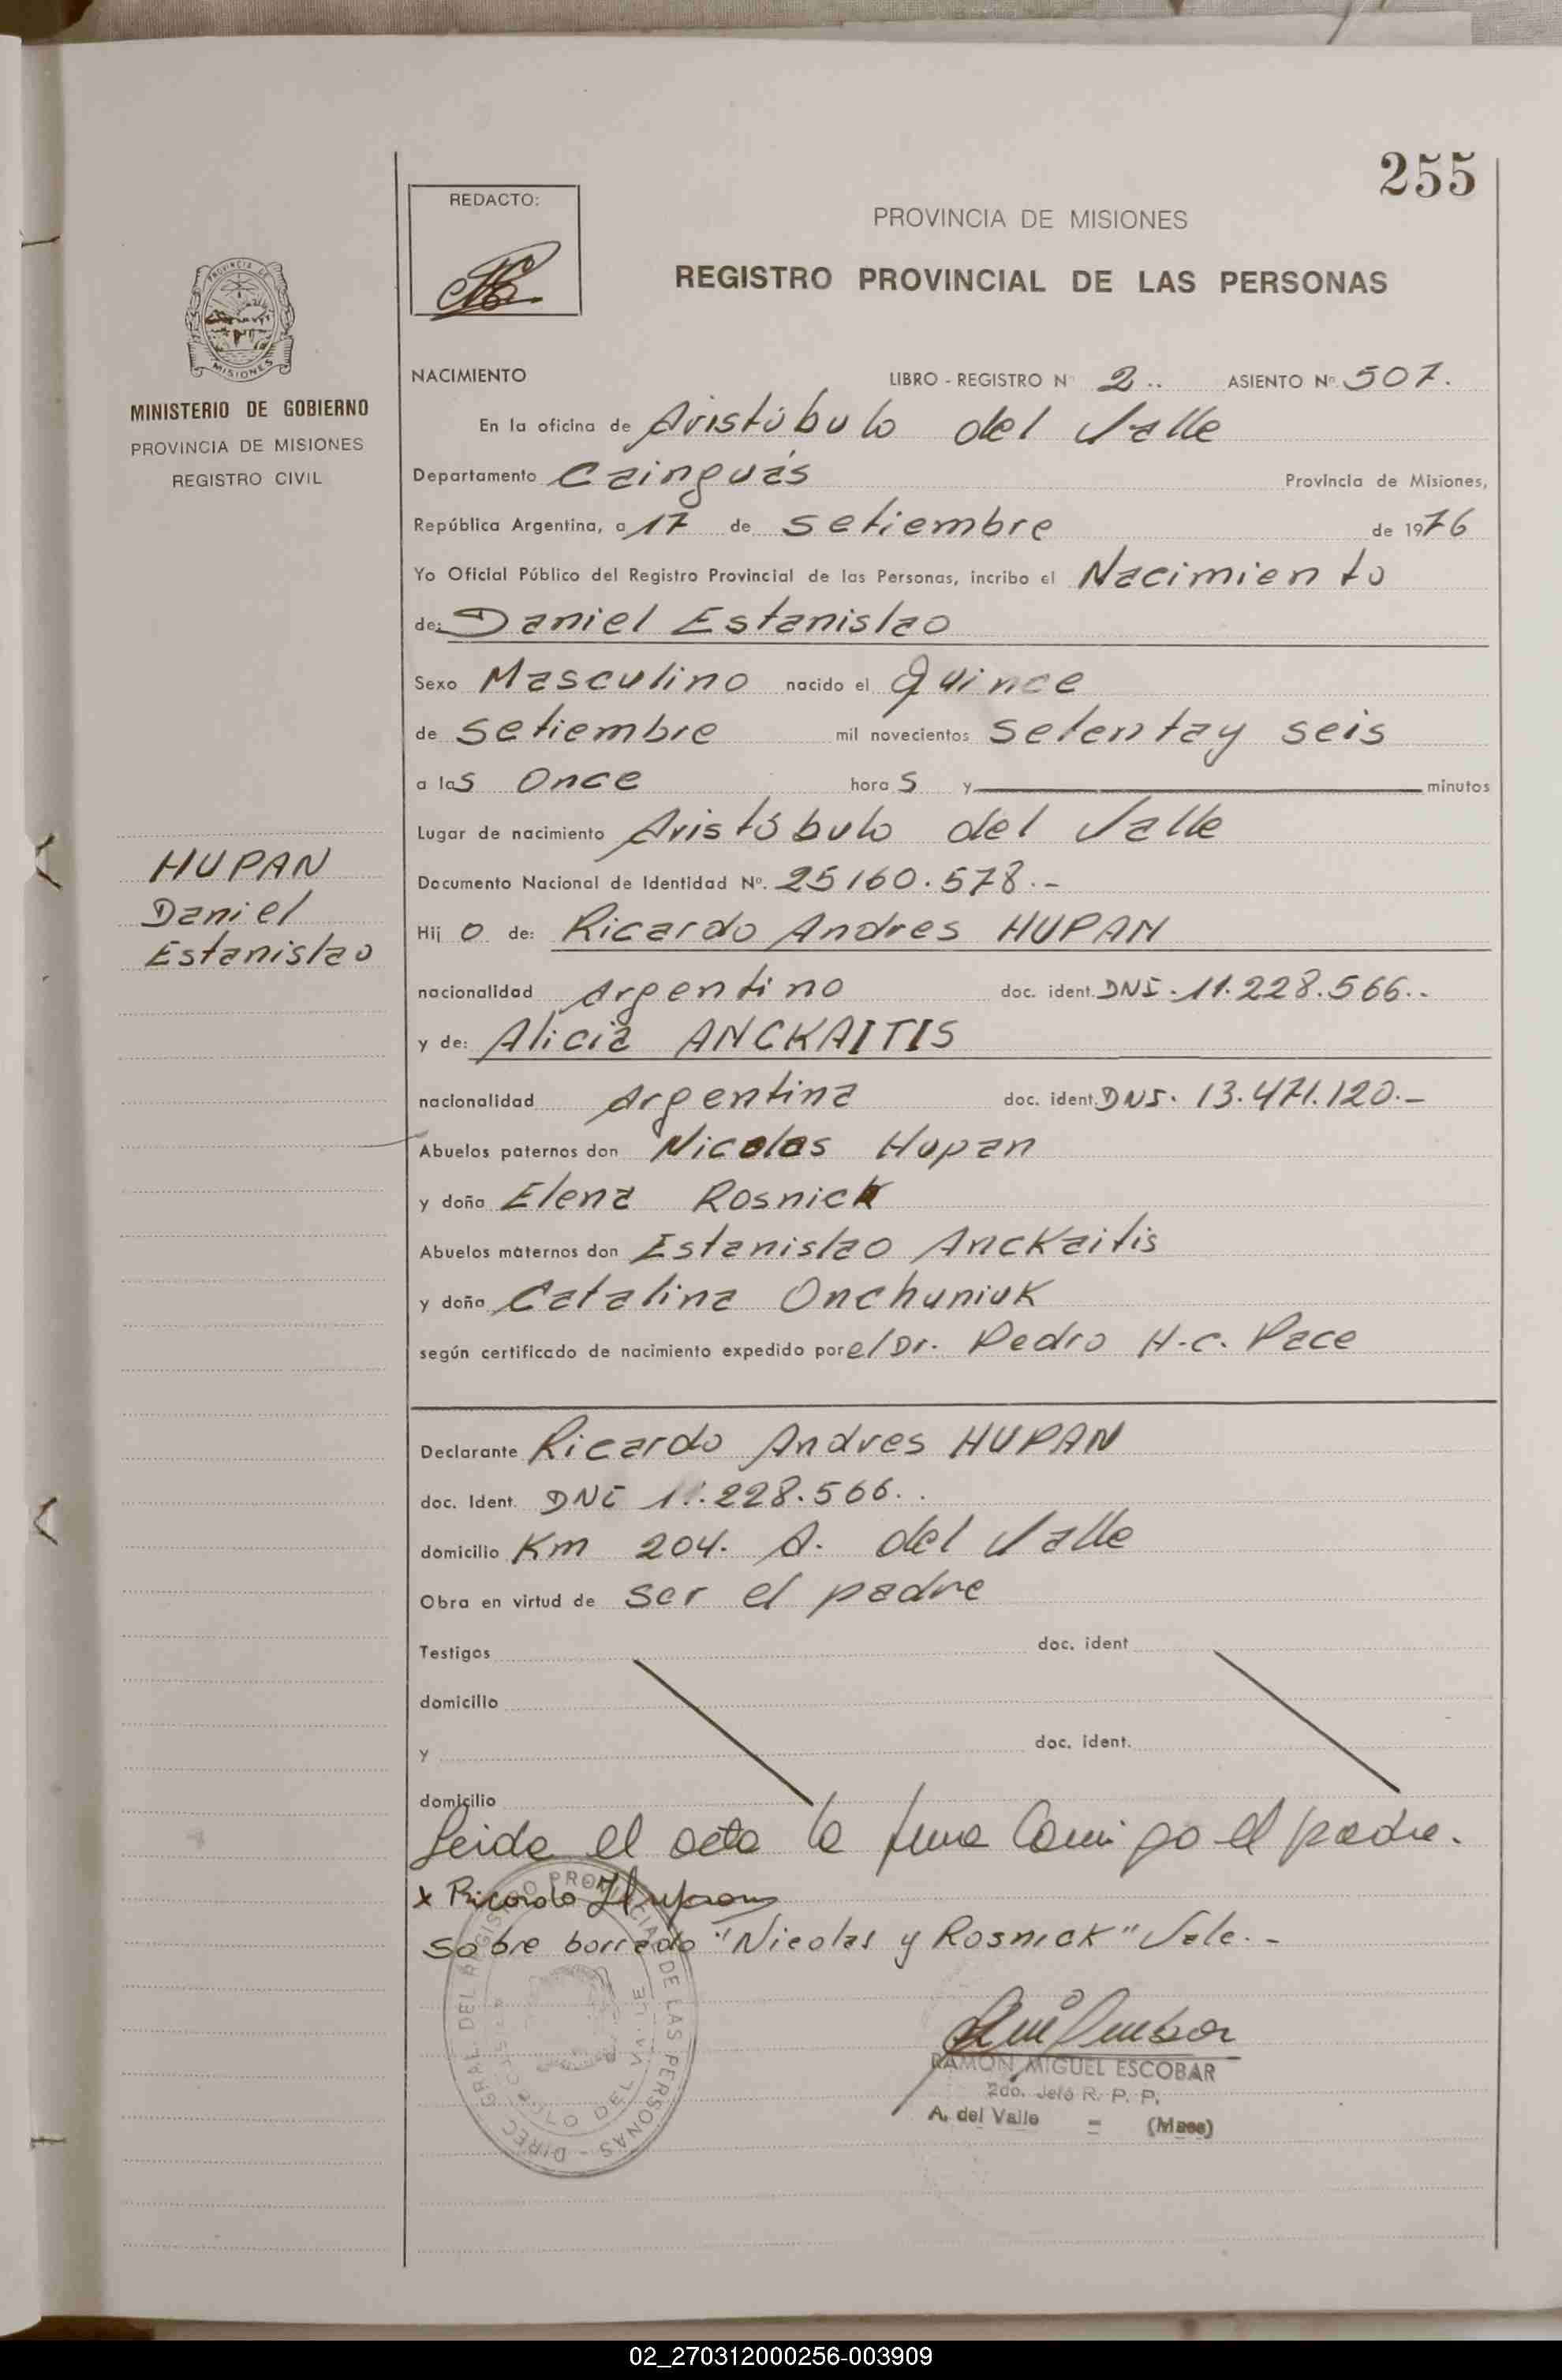 255
REDACTO:
PROVINCIA DE MISIONES
REGISTRO PROVINCIAL DE LAS PERSONAS
PROVINCIA DE
MISIONES
MINISTERIO DE GOBIERNO
PROVINCIA DE MISIONES
REGISTRO CIVIL
NACIMIENTO LIBRO - REGISTRO Nº 2.. ASIENTO Nº 507.
En la oficina de Aristóbulo del Valle
Departamento Cainguás Provincia de Misiones,
República Argentina, a 17 de setiembre de 1976
Yo Oficial Público del Registro Provincial de las Personas, incribo el Nacimiento
de: Daniel Estanislao
Sexo Masculino nacido el Quince
de setiembre mil novecientos setentay seis
a las Once horas y minutos
Lugar de nacimiento Aristóbulo del Valle
Documento Nacional de Identidad Nº. 25160.578.-
HUPAN
Daniel
Estanislao
Hijo de: Ricardo Andres HUPAN
nacionalidad Argentino doc. ident. DNI. 11.228.566..
y de: Alicia ANCKAITIS
nacionalidad Argentina doc. ident. DNI. 13.471.120.-
Abuelos paternos don Nicolas Hupan
y doña Elena Rosnick
Abuelos maternos don Estanislao Anckaitis
y doña Catalina Onchuniuk
según certificado de nacimiento expedido por el Dr. Pedro H.C. Pace
Declarante Ricardo Andres HUPAN
doc. Ident. DNI 11.228.566..
domicilio Km 204. A. del Valle
Obra en virtud de ser el padre
Testigos doc. ident
domicilio
y doc. ident.
domicilio
Leida el acta la firma Conmigo el padre.
x Ricardo Hupan
Sobre borrado "Nicolas y Rosnick" Vale.-
DIREC. GRAL. DEL REGISTRO PROVINCIAL DE LAS PERSONAS -
RAMON MIGUEL ESCOBAR
2do. Jefe R. P. P.
A. del Valle = (Mnes)
02_270312000256-003909